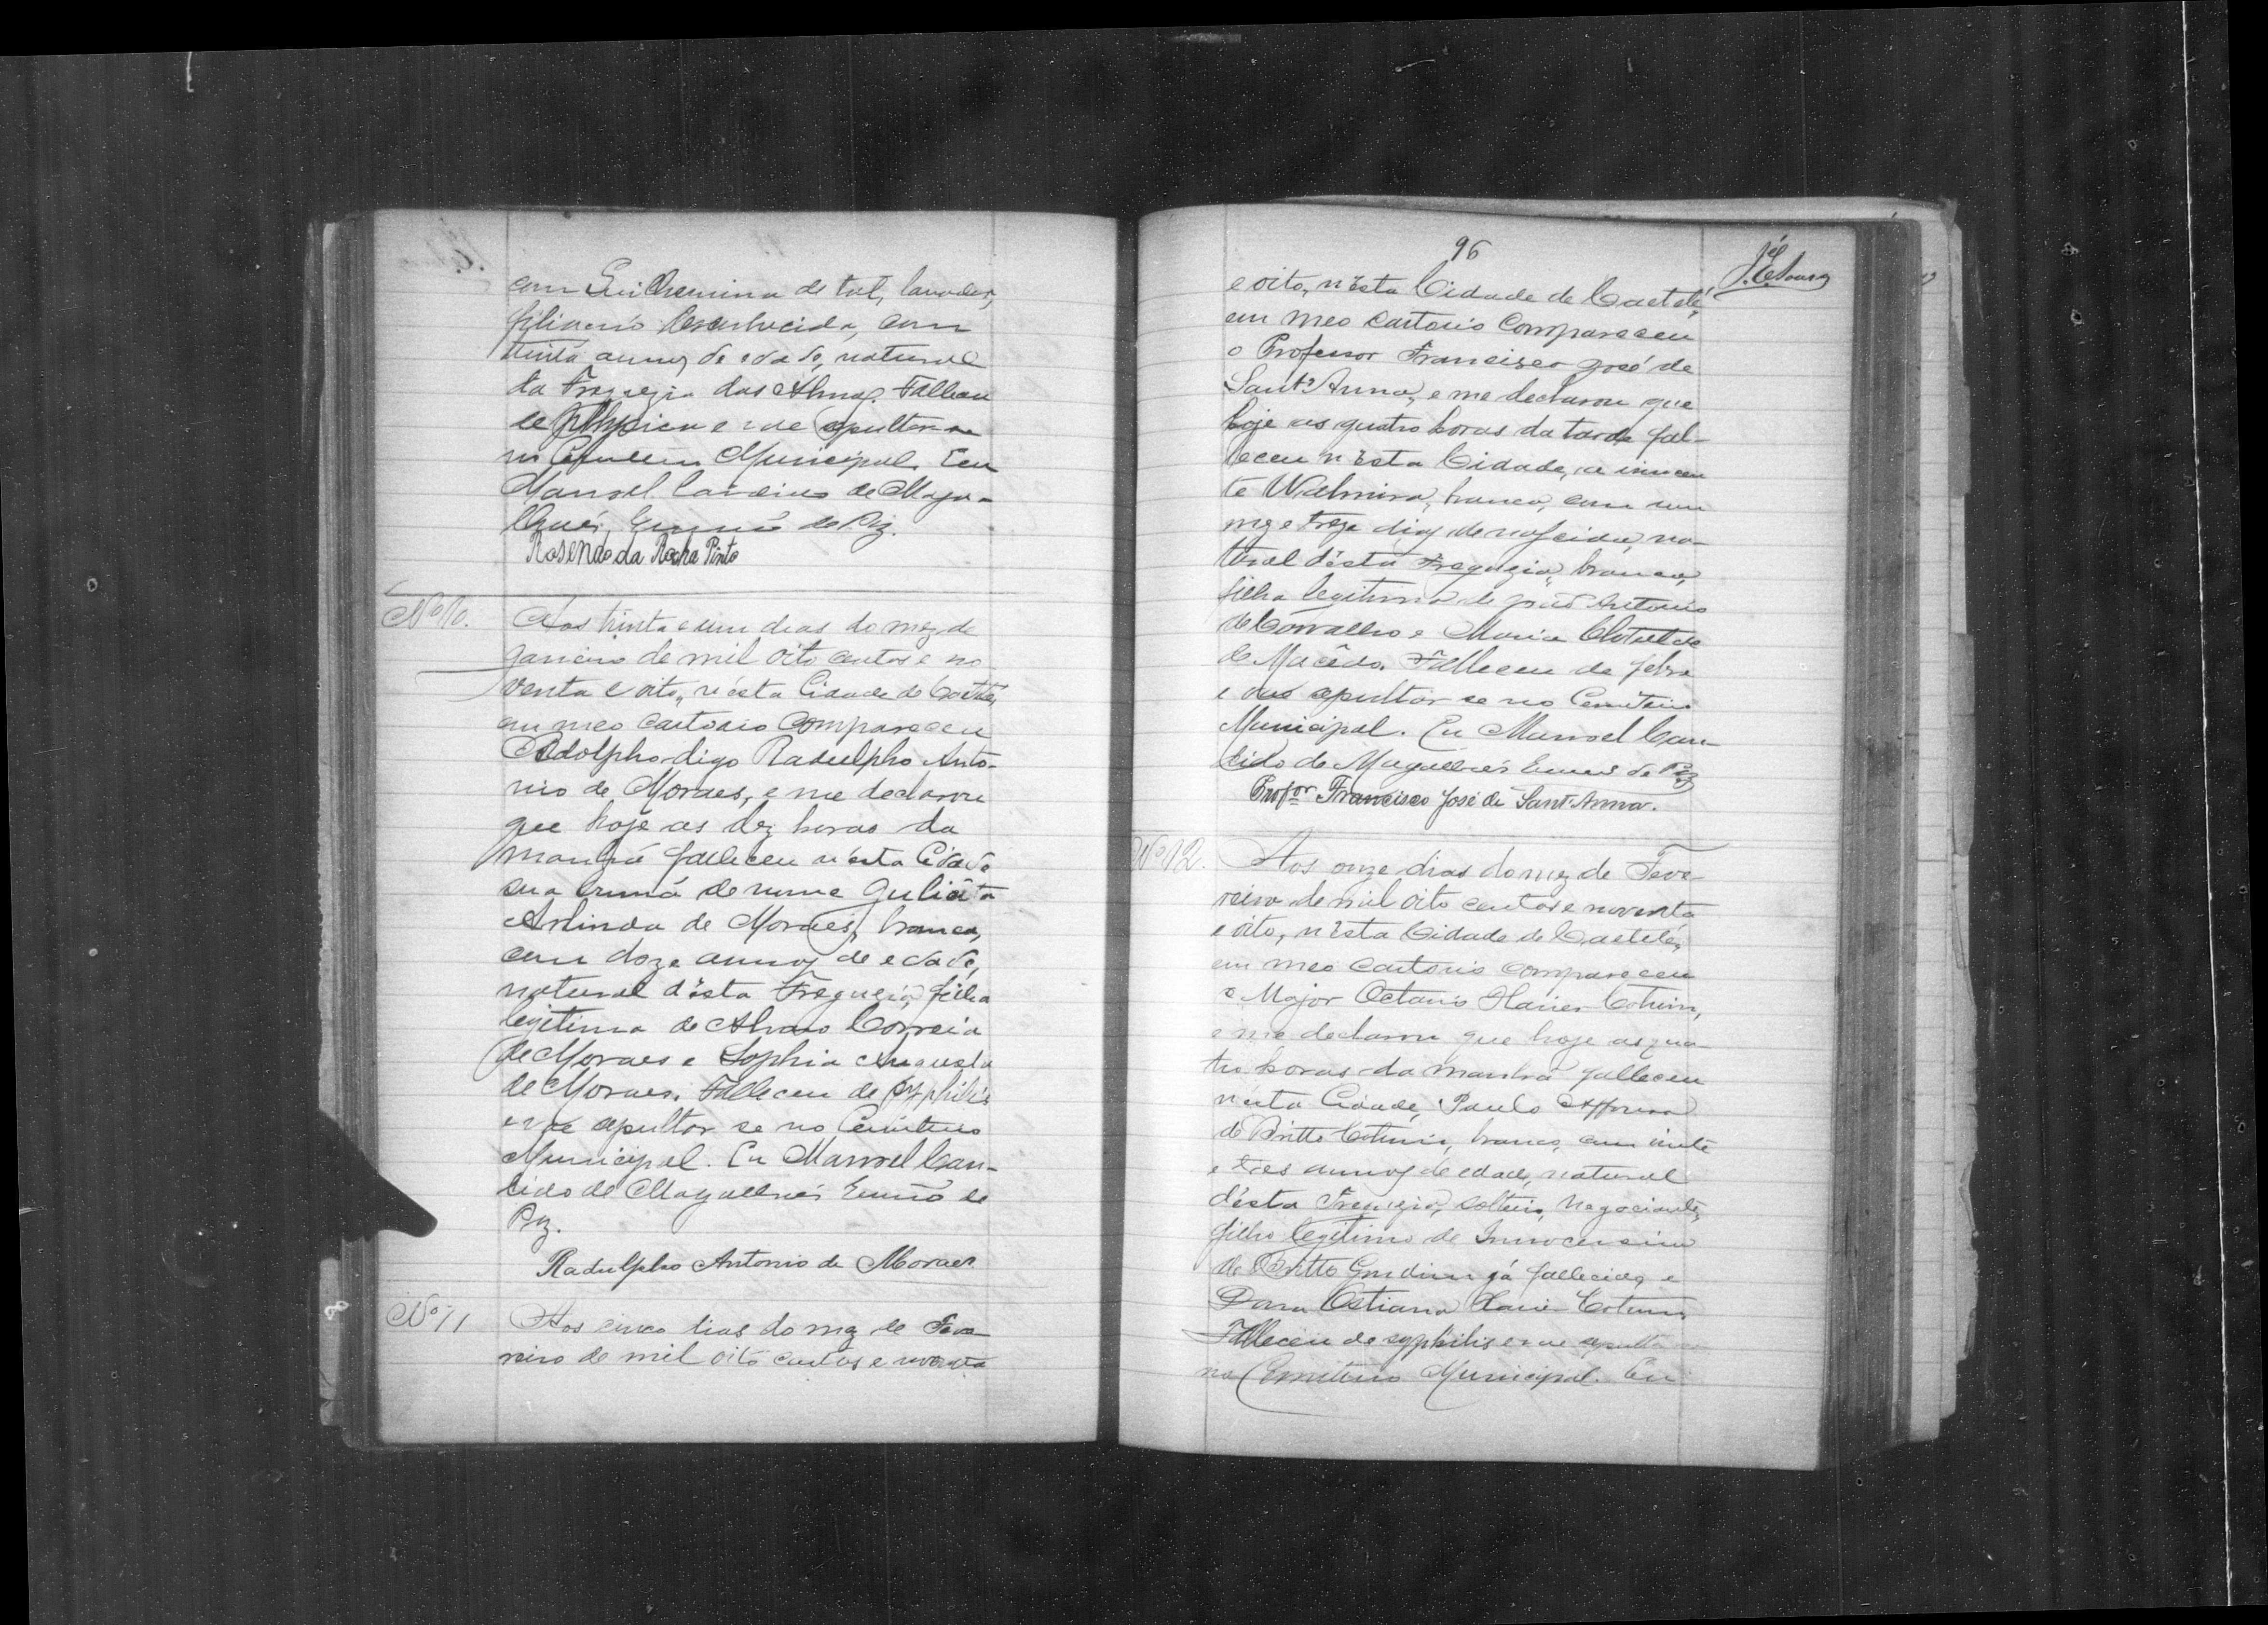 com Guilhermina de tal, lavrador,
filiação desconhecida, com
trinta annos de edade, natural
da Freguezia das Almas. Falleceu
de phthysica e vae sepultar-se
no Cemiterio Municipal. Eu
Manoel Candido de Maga-
lhães, Escrivão de Paz.
Rosendo da Rocha Pinto
Nº 10.
Aos trinta e um dias do mez de
Janeiro de mil oito centos e no
venta e oito, n'ésta Cidade de Caetité,
em meo Cartorio Compareceu
Adolpho digo Radulpho Anto-
nio de Moraes, e me declarou
que hoje as dez horas da
manhã falleceu n'ésta Cidade
sua irmã de nome Julieta
Arlinda de Moraes, branca,
com doze annos de edade,
natural d'ésta Freguezia, filha
legitima de Alvaro Correia
de Moraes e Sophia Augusta
de Moraes. Falleceu de syphilis
e vae sepultar se no Cemiterio
Municipal. Eu Manoel Can-
dido de Magalhães Escrivão de
Paz.
Radulpho Antonio de Moraes
Nº 11
Aos cinco dias do mez de Feve
reiro de mil oito centos e noventa
96
e oito, n'ésta Cidade de Caetité,
em meo Cartorio Compareceu
o Professor Francisco José de
Sant'Anna, e me declarou que
hoje as quatro horas da tarde fal-
leceu n'ésta Cidade, a innocen
te Walmira, branca, com um
mez e treze dias de nascida, na-
tural d'ésta Freguezia, branca,
filha legitima de João Antonio
de Carvalho e Maria Clotildes
de Macêdo. Falleceu de febre
e vae sepultar se no Cemiterio
Municipal. Eu Manoel Can-
dido de Magalhães Escrivão de Paz
Profor Francisco José de Sant'Anna.
Nº 12.
Aos onze dias do mez de Feve-
reiro de mil oito centos e noventa
e oito, n'ésta Cidade de Caetité,
em meo Cartorio compareceu
o Major Octavio Xavier Cotrim,
e me declarou que hoje as qua
tro horas da manhã falleceu
n'ésta Cidade, Paulo Affonso
de Britto Cotrim, branco, com vinte
e tres annos de edade, natural
d'ésta Freguezia, solteiro, negociante,
filho legitimo de Innocencio
de Britto Gondim já fallecido, e
Dona Octiana Xavier Cotrim
Falleceu de syphilis e vae sepultar
no Cemiterio Municipal. Eu